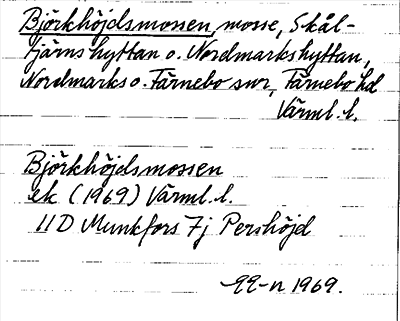 Björkhöjdsmossen, mosse, Skål-
tjärnshyttan o. Nordmarkshyttan,
Nordmarks o. Färnebo snr, Färnebo hd
Värml. l.
Björkhöjdsmossen
ek (1969) Värml. l.
11D Munkfors 7j Pershöjd
-99-n 1969.